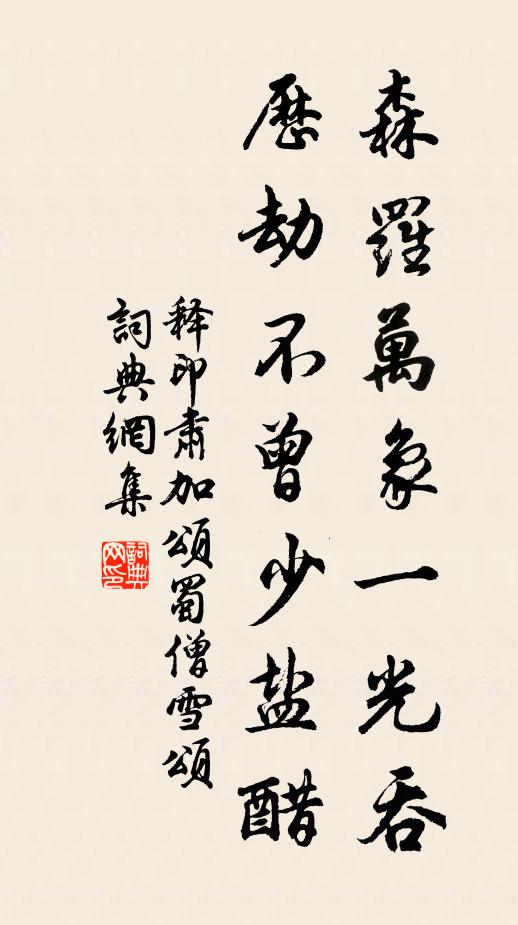 森羅萬象一光吞
歷劫不曾少盐醋
释印肃加頌蜀僧雪頌
詞典網集
詞典网印